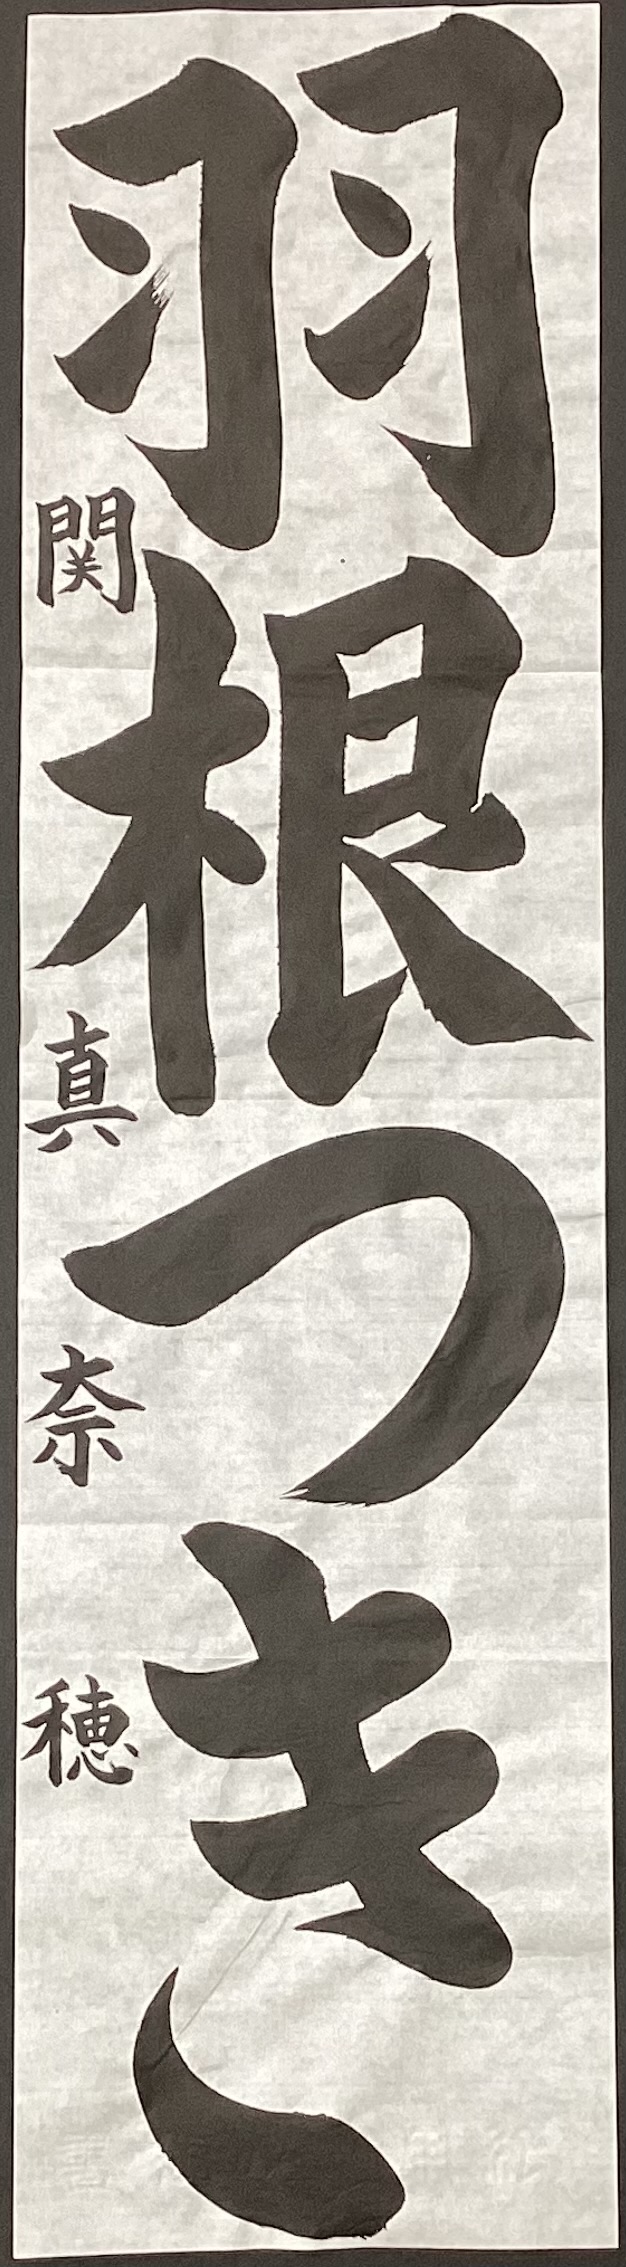 羽根つき
関真奈穂